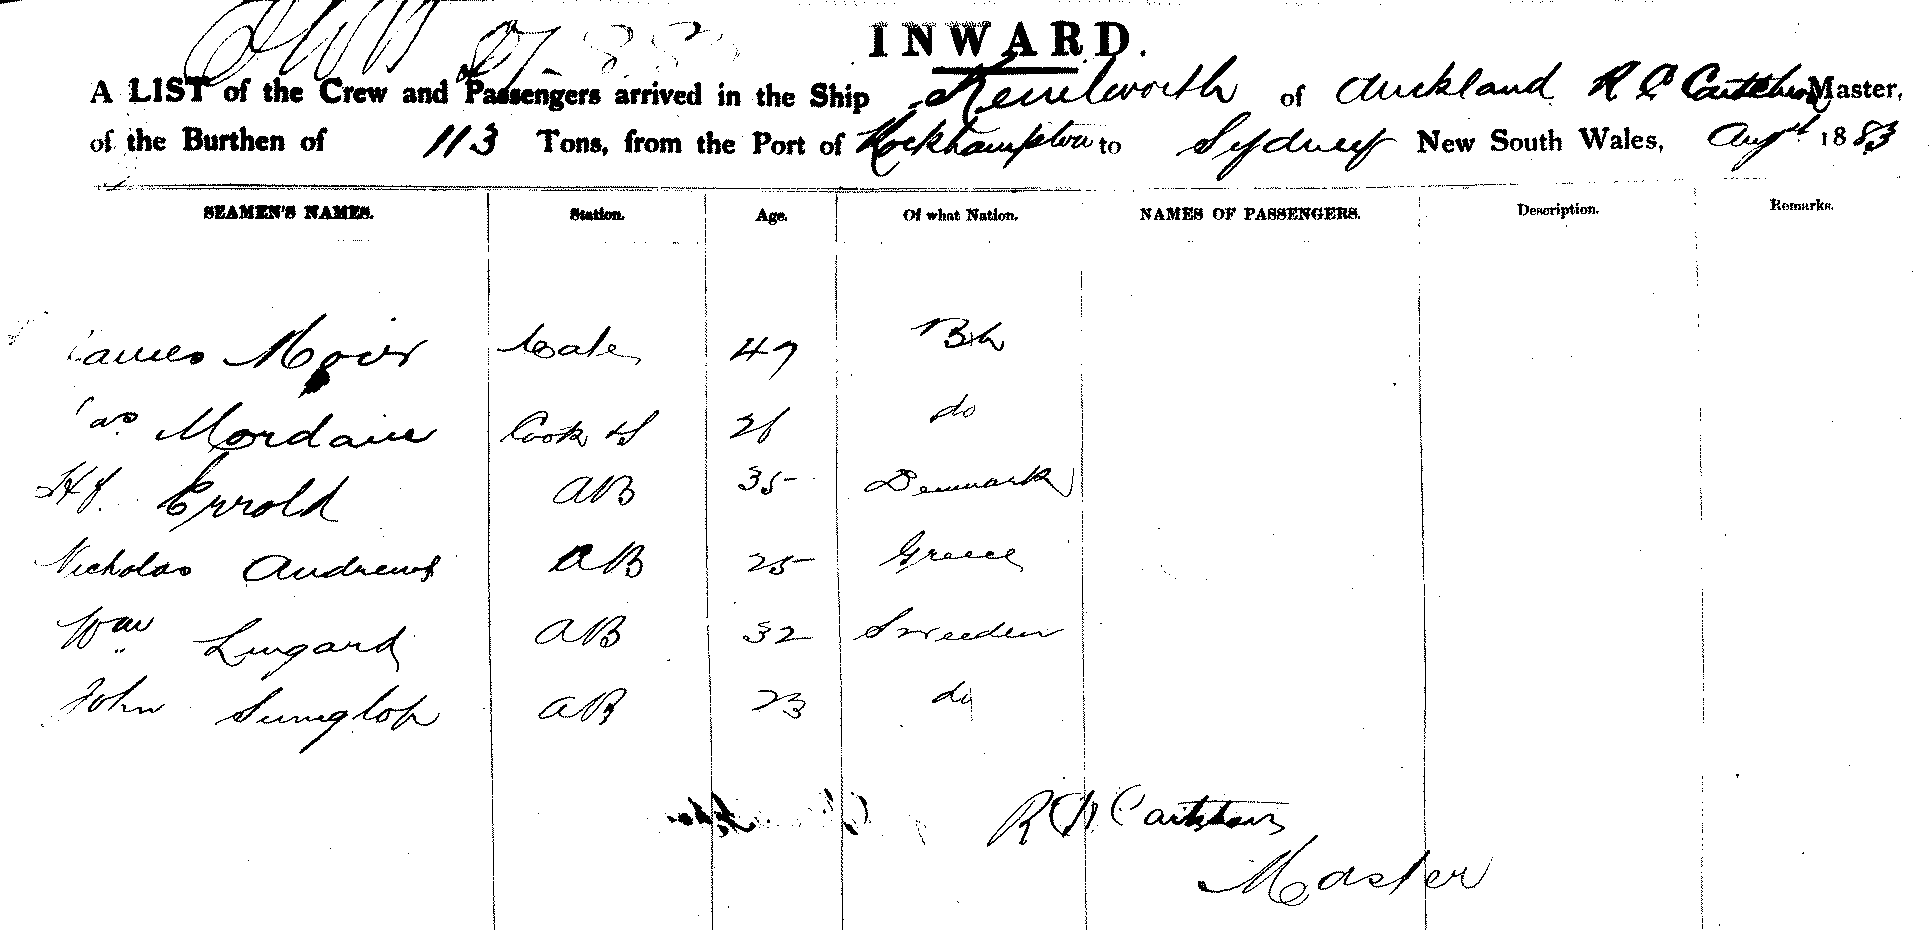 INWARD.
A LIST of the Crew and Passengers arrived in the Ship Kenilworth of Auckland R Master,
of the Burthen of 113 Tons, from the Port of Rockhampton to Sydney New South Wales, Augt 1883
SEAMEN'S NAMES. Station. Age. Of what Nation. NAMES OF PASSENGERS. Description. Remarks.
James Moir Mate 47 Bh
Jas Mordaue Cook & S 26 do
Hy Errold AB 35 Denmark
Nicholas Andrews AB 25 Greece
Wm Lungard AB 32 Sweeden
John AB 23 do
R
Master